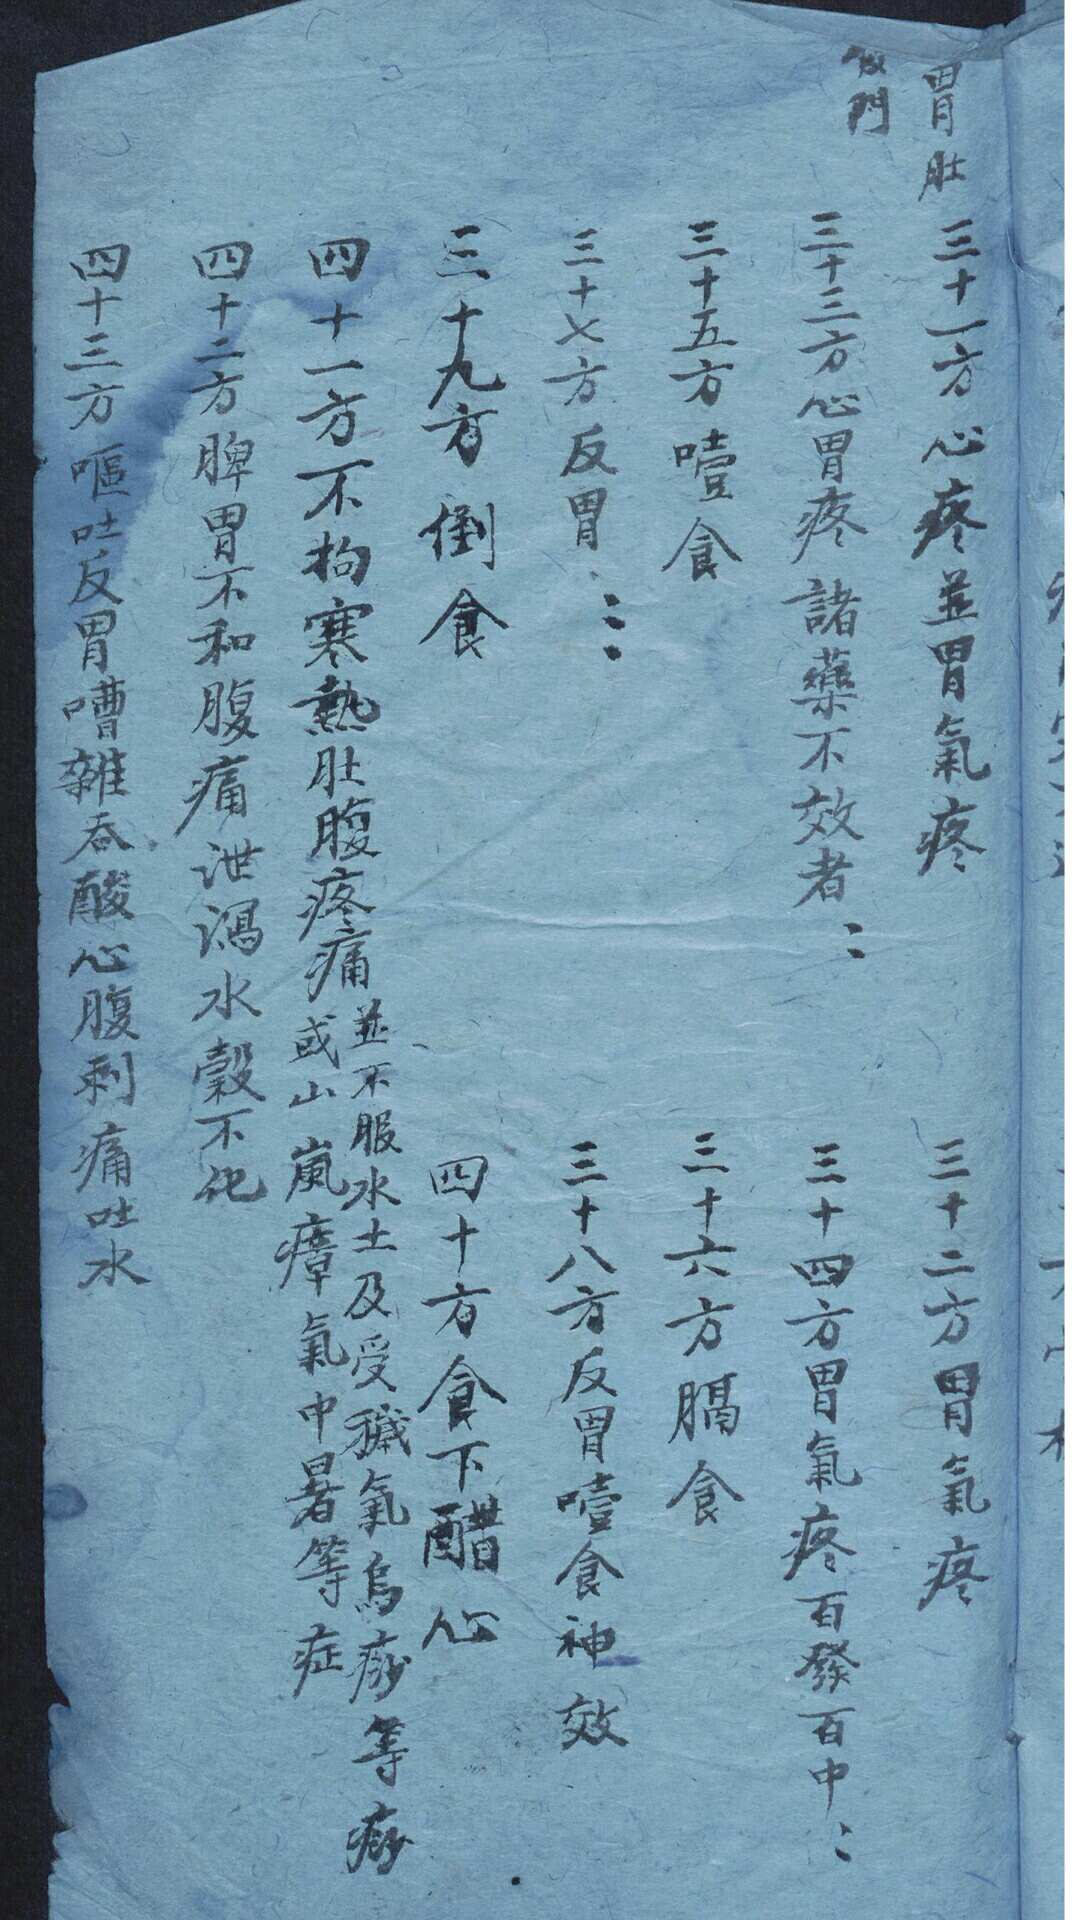 胃肚
門
三十一方心疼並胃氣疼
三十二方胃氣疼
三十三方心胃疼諸藥不效者
三十四方胃氣疼百發百中
三十五方噎食
三十六方膈食
三十七方反胃
三十八方反胃噎食神效
三十九方倒食
四十方食下醋心
四十一方不拘寒熱肚腹疼痛
並不服水土及受穢氣烏痧等痧
或山嵐瘴氣中暑等症
四十二方脾胃不和腹痛泄瀉水穀不化
四十三方嘔吐反胃嘈雜吞酸心腹刺痛吐水